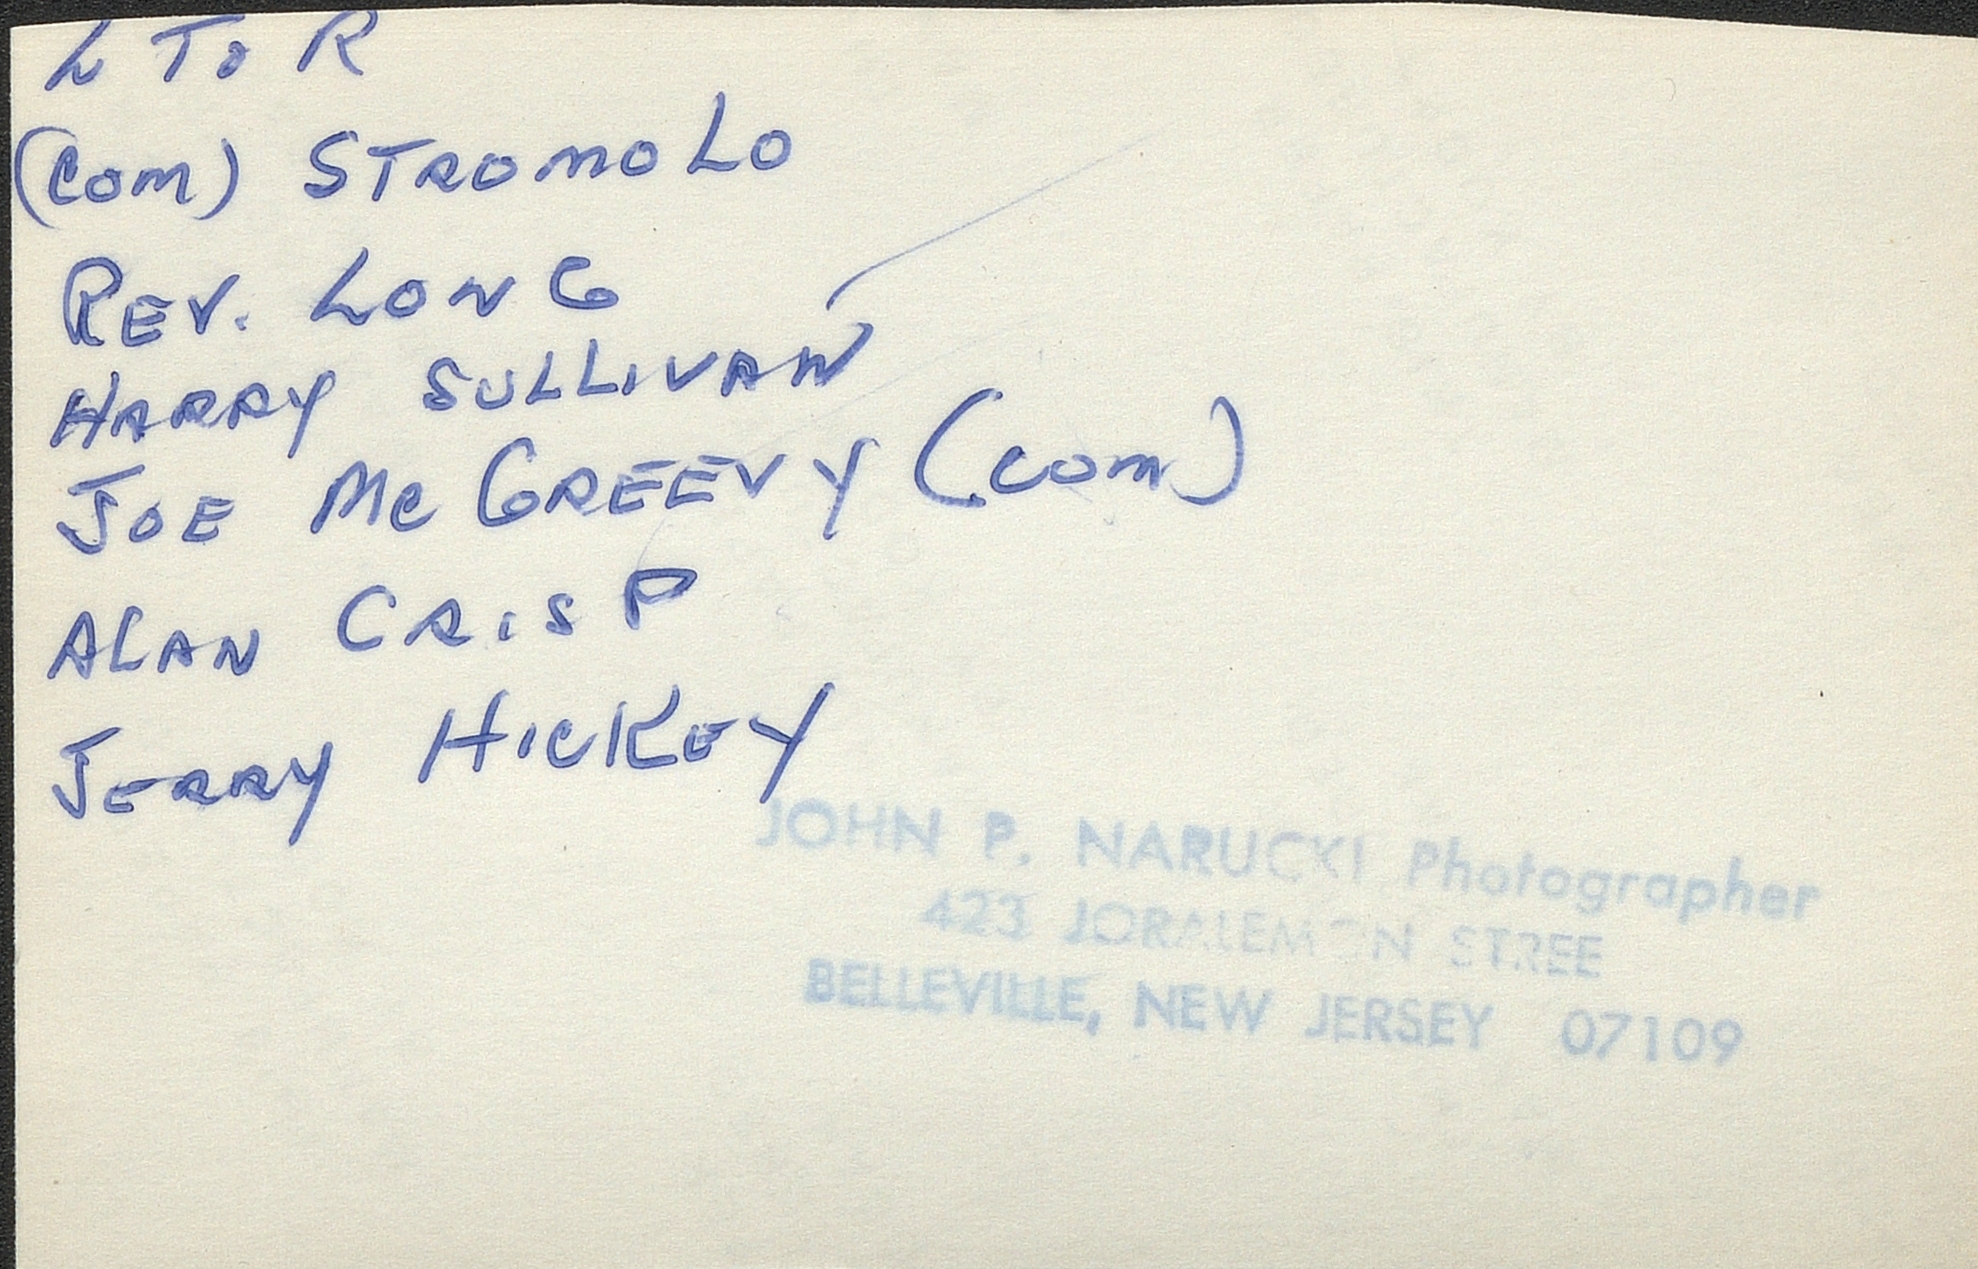 L To R
(Com) STROMOLO
REV. LONG
HARRY SULLIVAN
JOE Mc GREEVY (com)
ALAN CRISP
JERRY HICKEY
JOHN P. NARUCKI Photographer
423 JORALEMON STREE
BELLEVILLE, NEW JERSEY 07109